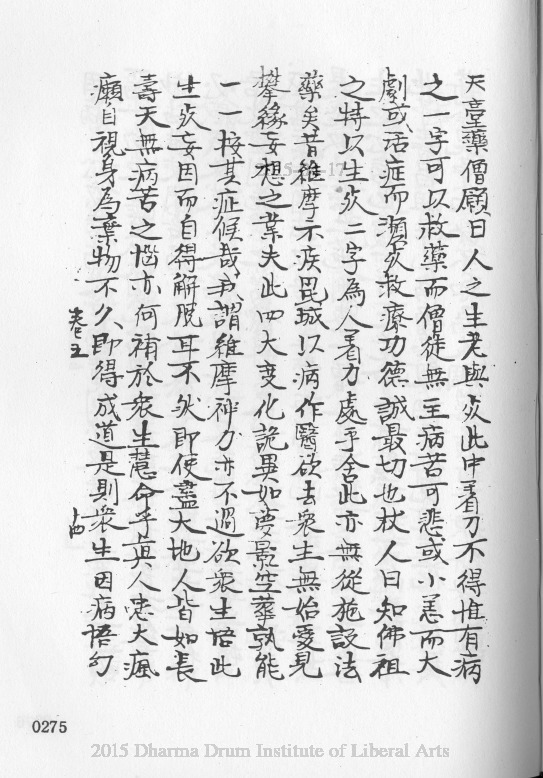 天臺藥僧願曰人之生老與死此中著力不得惟有病
之一字可以救藥而僧徒無主病苦可悲或小恙而大
劇或活症而瀕死救療功德誠最切也杖人曰知佛祖
之特以生死二字為人著力處乎舍此亦無從施設法
藥矣昔維摩不疾毘城以病作醫欲去眾生無始愛見
攀緣妄想之業夫此四大变化詭異如夢影空華孰能
一一按其症候哉我謂維摩神力亦不過欲眾生悟此
生死妄因而自得解脫耳不然即使盡大地人皆如長
壽天無病苦之惱亦何補於眾生慧命乎真人患大瘋
癩自視身為棄物不久即得成道是則眾生因病悟幻
卷五
上四
0275
2015 Dharma Drum Institute of Liberal Arts